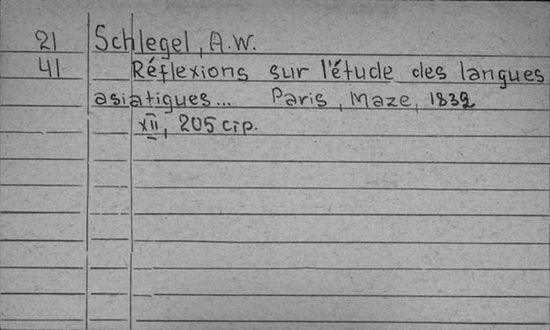 21 Schlegel, A.W.
41 Réflexions sur l'étude des langues
asiatigues... Paris, Maze, 1832
XII, 205 стр.